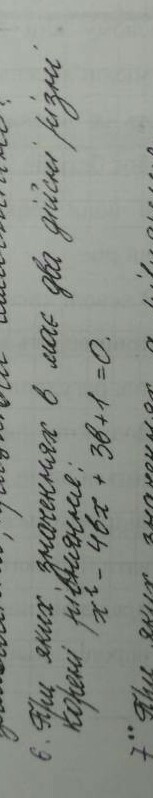 6. При яких значеннях в має два дійсні різні
корені рівняння:
x² - 4вx + 3в + 1 = 0.
7** При яких значеннях а рівняння